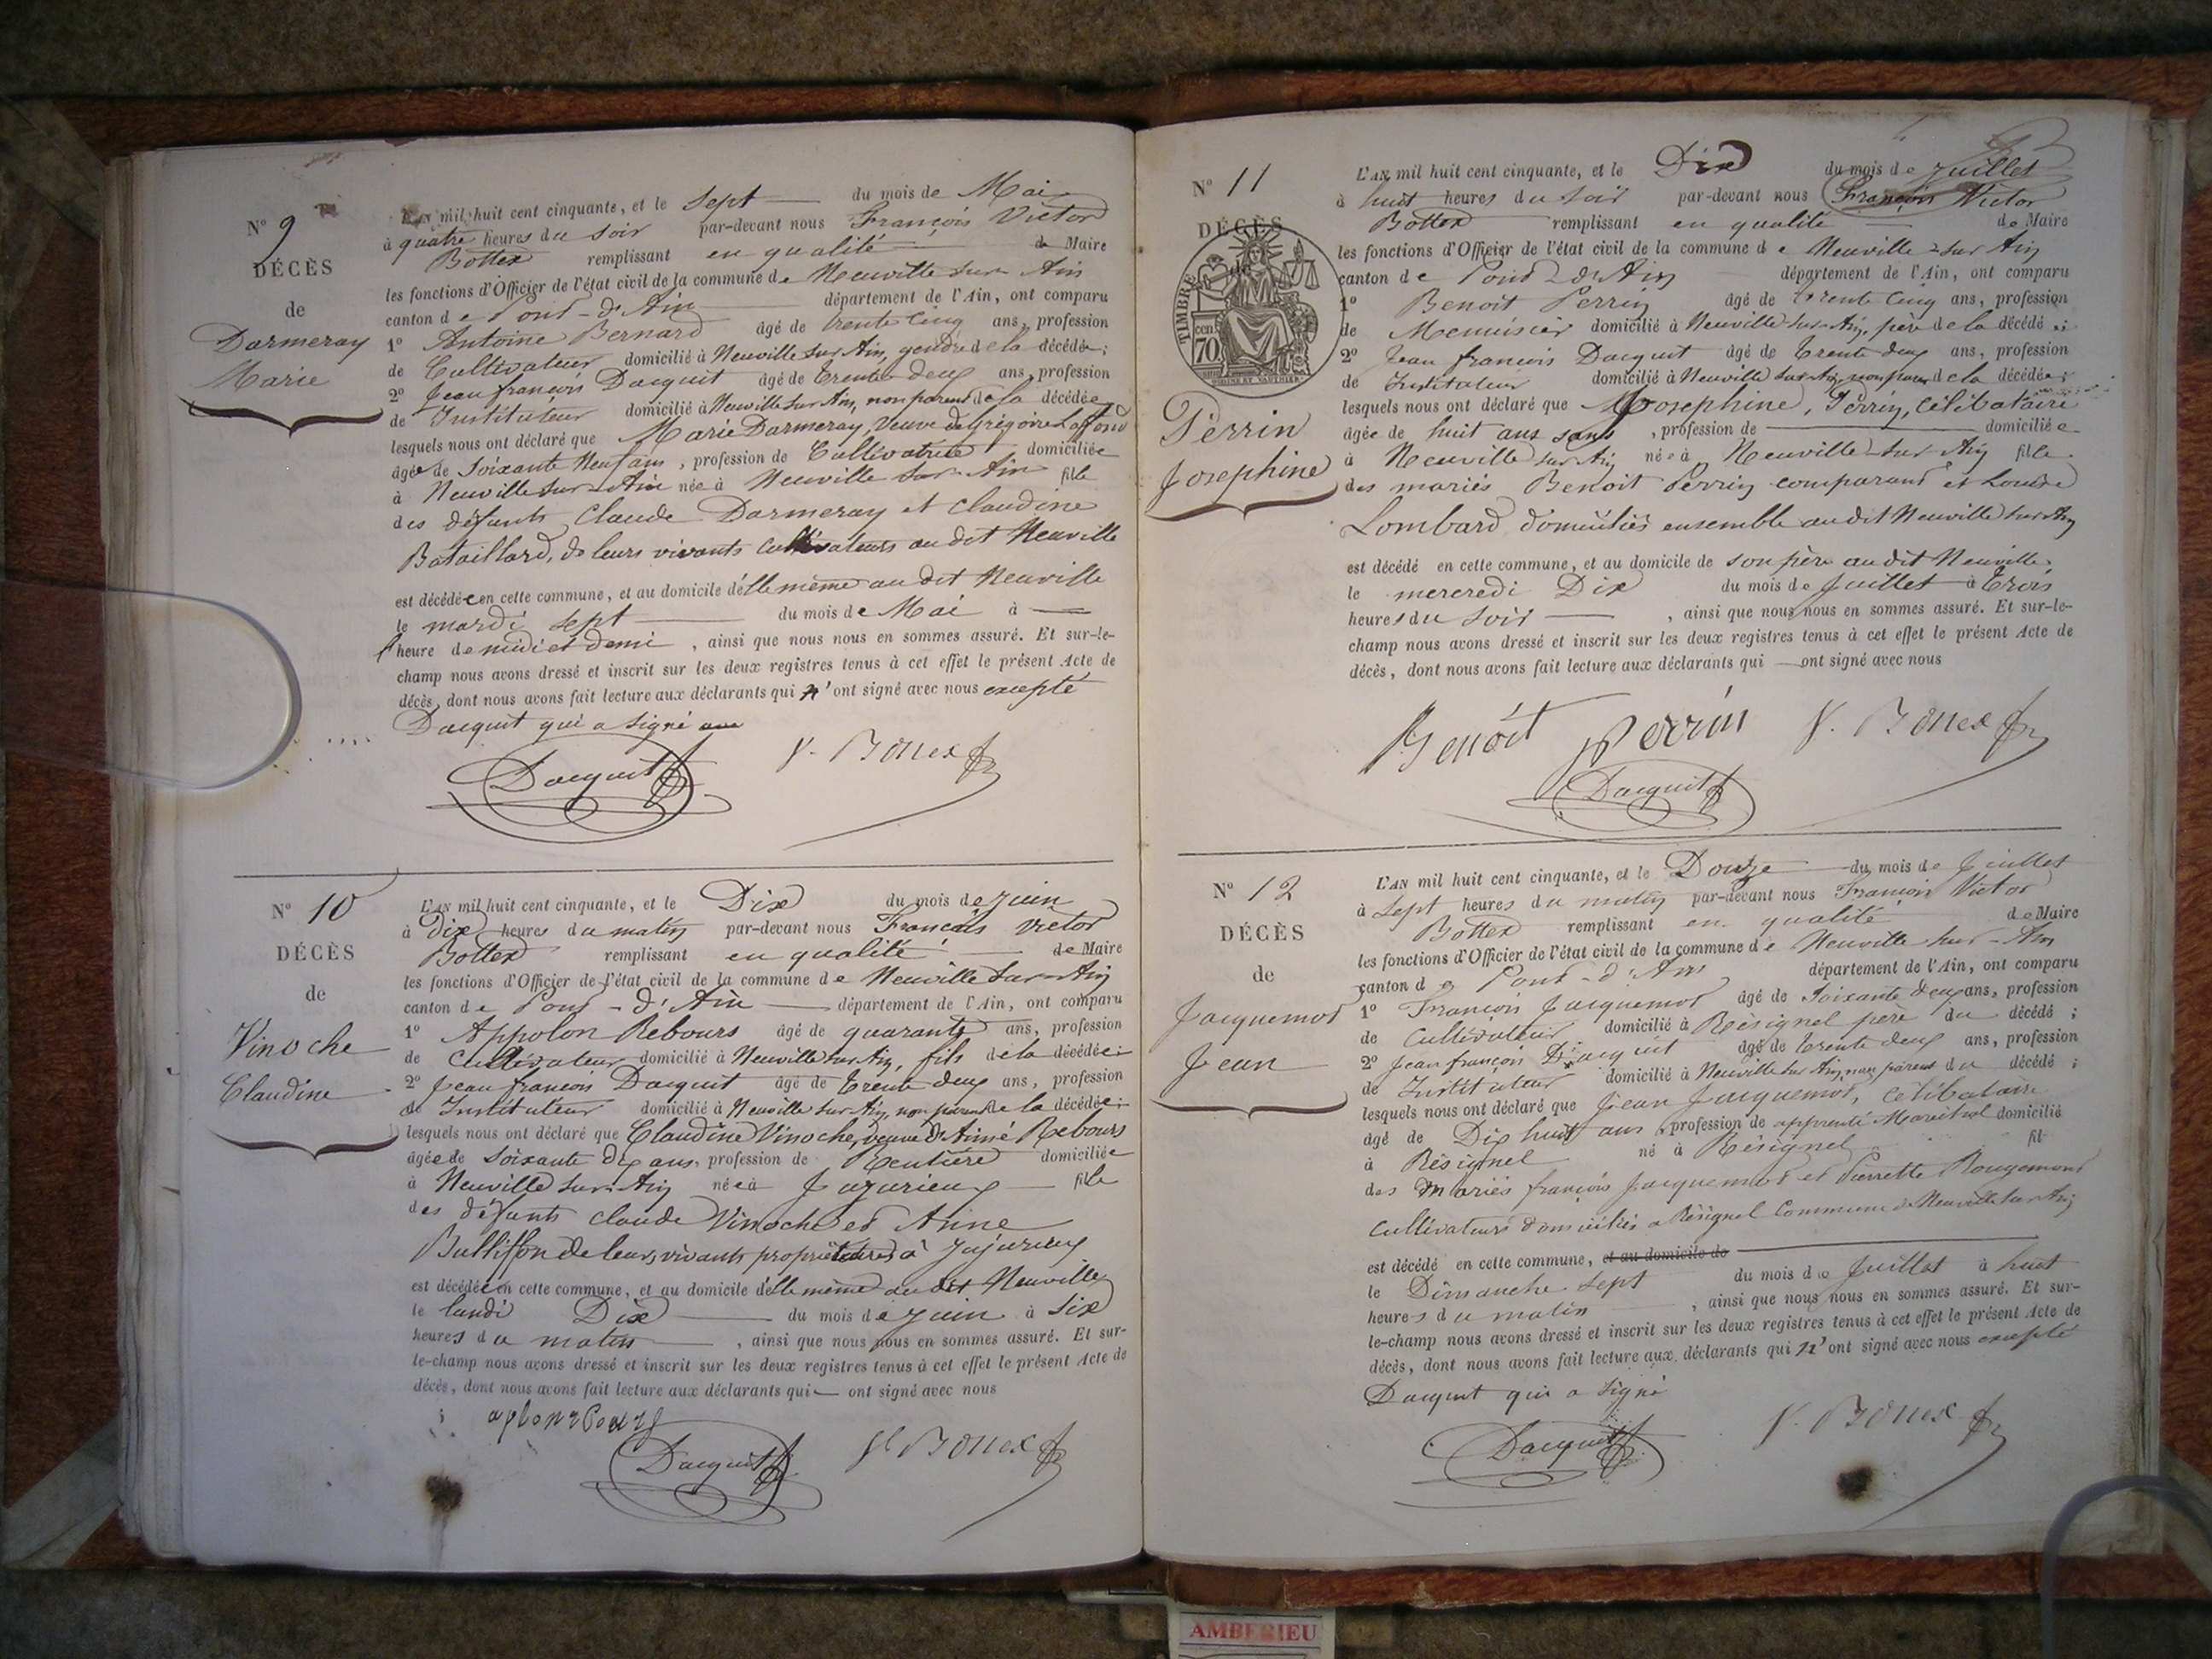 N° 9
DÉCÈS
de
Darmeray
Marie
L'AN mil huit cent cinquante, et le Sept du mois de Mai
à quatre heures du soir par-devant nous François Victor
Bottex remplissant en qualité de Maire
les fonctions d'Officier de l'état civil de la commune de Neuville sur Ain
canton de Pont-d'Ain département de l'Ain, ont comparu
1° Antoine Bernard âgé de trente cinq ans, profession
de Cultivateur domicilié à Neuville sur Ain, gendre de la décédée ;
2° Jean françois Dacquit âgé de trente deux ans, profession
de Instituteur domicilié à Neuville sur Ain, non parent de la décédée
lesquels nous ont déclaré que Marie Darmeray, Veuve de Grégoire Laffond
âgée de soixante Neuf ans, profession de Cultivatrice domiciliée
à Neuville sur Ain née à Neuville sur Ain fille
des défunts Claude Darmeray et Claudine
Bataillard, de leurs vivants cultivateurs au dit Neuville
est décédée en cette commune, et au domicile d'elle même au dit Neuville
le mardi sept du mois de Mai à
l'heure de midi et demi, ainsi que nous nous en sommes assuré. Et sur-le-
champ nous avons dressé et inscrit sur les deux registres tenus à cet effet le présent Acte de
décès, dont nous avons fait lecture aux déclarants qui n'ont signé avec nous excepté
Dacquit qui a signé
Dacquit V. Bottex
N° 10
DÉCÈS
de
Vinoche
Claudine
L'AN mil huit cent cinquante, et le Dix du mois de juin
à Dix heures du matin par-devant nous François Victor
Bottex remplissant en qualité de Maire
les fonctions d'Officier de l'état civil de la commune de Neuville sur-Ain
canton de Pont-d'Ain département de l'Ain, ont comparu
1° Appolon Rebours âgé de quarante ans, profession
de Cultivateur domicilié à Neuville sur Ain, fils de la décédée ;
2° Jean françois Dacquit âgé de trente deux ans, profession
de Instituteur domicilié à Neuville sur-Ain, non parent de la décédée ;
lesquels nous ont déclaré que Claudine Vinoche, veuve d'Aimé Rebours
âgée de soixante dix ans, profession de Rentière domiciliée
à Neuville sur-Ain née à Jujurieux fille
des défunts Claude Vinoche et Anne
Bulliffon de leurs vivants propriétaires à Jujurieux
est décédée en cette commune, et au domicile d'elle même au dit Neuville
le lundi Dix du mois de juin à six
heures du matin, ainsi que nous nous en sommes assuré. Et sur-
le-champ nous avons dressé et inscrit sur les deux registres tenus à cet effet le présent Acte de
décès, dont nous avons fait lecture aux déclarants qui ont signé avec nous
Dacquit V. Bottex
N° 11
DÉCÈS
de
TIMBRE
70 cen.
Perrin
Josephine
L'AN mil huit cent cinquante, et le Dix du mois de Juillet
à huit heures du soir par-devant nous François Victor
Bottex remplissant en qualité de Maire
les fonctions d'Officier de l'état civil de la commune de Neuville-sur Ain
canton de Pont-d'Ain département de l'Ain, ont comparu
1° Benoit Perrin âgé de trente cinq ans, profession
de Menuisier domicilié à Neuville sur-Ain, père de la décédée ;
2° Jean françois Dacquit âgé de trente deux ans, profession
de Instituteur domicilié à Neuville sur Ain, non parent de la décédée ;
lesquels nous ont déclaré que Josephine, Perrin, Célibataire
âgée de huit ans sans, profession de domiciliée
à Neuville sur Ain née à Neuville-sur Ain fille
des mariés Benoit Perrin comparant et Louise
Lombard domiciliés ensemble au dit Neuville sur Ain
est décédé en cette commune, et au domicile de son père au dit Neuville
le mercredi Dix du mois de Juillet à trois
heures du soir, ainsi que nous nous en sommes assuré. Et sur-le-
champ nous avons dressé et inscrit sur les deux registres tenus à cet effet le présent Acte de
décès, dont nous avons fait lecture aux déclarants qui ont signé avec nous
Benoit Perrin V. Bottex
Dacquit
N° 12
DÉCÈS
de
Jacquemot
Jean
L'AN mil huit cent cinquante, et le Douze du mois de Juillet
à Sept heures du matin par-devant nous François Victor
Bottex remplissant en qualité de Maire
les fonctions d'Officier de l'état civil de la commune de Neuville sur-Ain
canton de Pont-d'Ain département de l'Ain, ont comparu
1° François Jacquemot âgé de Soixante deux ans, profession
de Cultivateur domicilié à Résignel père du décédé ;
2° Jean françois Dacquit âgé de trente deux ans, profession
de Instituteur domicilié à Neuville sur Ain, non parent du décédé ;
lesquels nous ont déclaré que Jean Jacquemot, célibataire
âgé de Dix huit ans, profession de apprenti Maréchal domicilié
à Résignel né à Résignel fil
des mariés françois Jacquemot et Pierrette Rougemont
Cultivateurs domiciliés a Résignel Commune de Neuville sur Ain
est décédé en cette commune, et au domicile de
le Dimanche sept du mois de Juillet à huit
heures du matin, ainsi que nous nous en sommes assuré. Et sur-
le-champ nous avons dressé et inscrit sur les deux registres tenus à cet effet le présent Acte de
décès, dont nous avons fait lecture aux déclarants qui n'ont signé avec nous excepté
Dacquit qui a signé
Dacquit V. Bottex
AMBERIEU